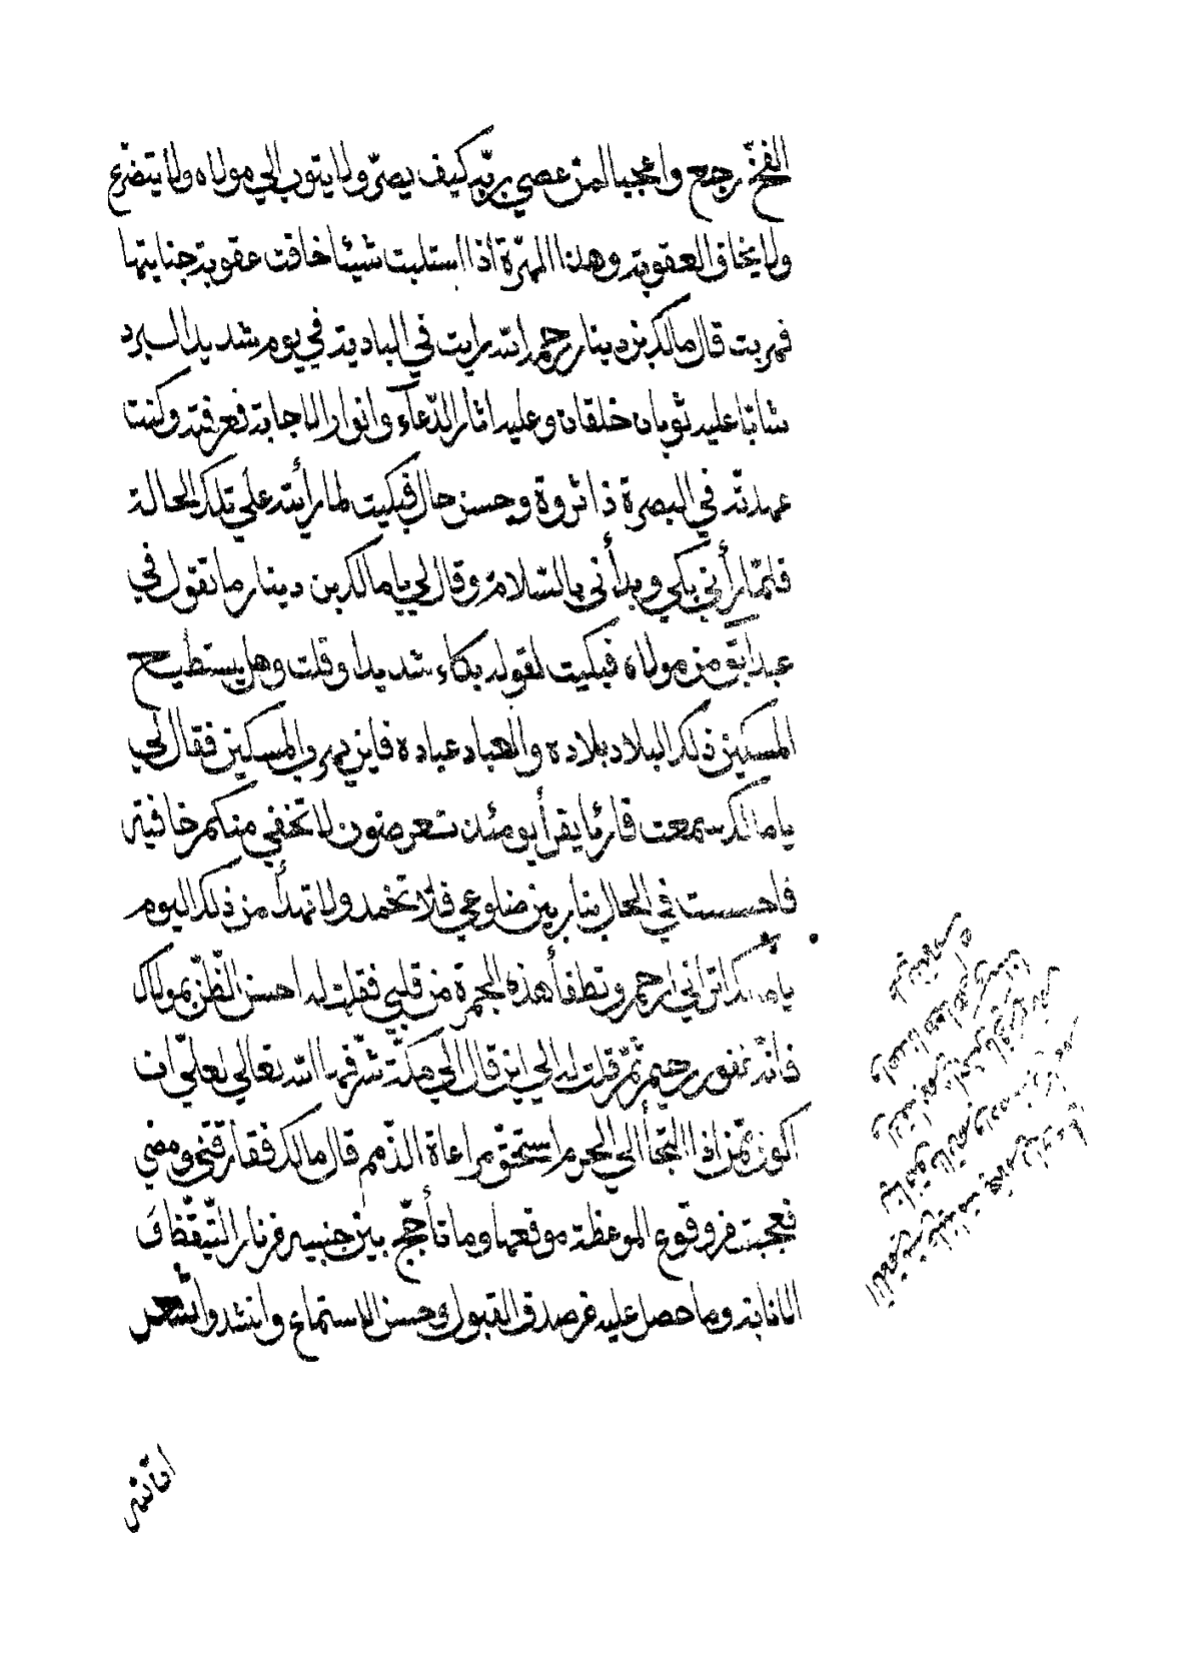 الفخّ رجع واعجبا لمن عصي ربّه كيف يصرّ ولا يتوب الي مولاه ولا يتضرّع
ولا يخاف العقوبة وهذا الهرّة اذا استلبت شيئا خافت عقوبة جنايتها
فهربت قال مالك بن دينار رحمه الله رايت في البادية في يوم شديد البرد
شابّا عليه ثوبان خلقان وعليه اثار الدّعآء وانوار الاجابة فعرفته وكنت
عهدته في البصرة ذا ثروة وحسن حال فبكيت لما رأيته علي تلك الحالة
فلمّا رأني بكي وبدأني بالسّلام وقال لي يا مالك بن دينار ما تقول في
عبد ابق من مولاه فبكيت لقوله بكاء شديدا وقلت وهل يستطيع
المسكين ذلك البلاد بلاده والعباد عباده فاين يهرب المسكين فقال لي
يا مالك سمعت قارئا يقرأ يومئذ تعرضون لا تخفي منكم خافية
فاحسست في الحال بنار بين ضلوعي فلا تخمد ولا تهدأ من ذلك اليوم
يا مالك اتراني ارحم وتطفأ هذه الجمرة من قلبي فقلت له احسن الظّنّ بمولاك
فانّه غفور رحيم ثمّ قلت له الي اين قال الي مكّة شرّفها الله تعالي لعلّي ان
اكون ممّن اذا التجأ الي الحرم استحقّ مراعاة الذّمم قال مالك ففارقني ومضي
فعجبت من وقوع الموعظة موقعها وما تأجّج بين جنبيه من نار التّيقّظ و
الانابة وما حصل عليه من صدق القبول وحسن الاستماع وانشدوا شعر